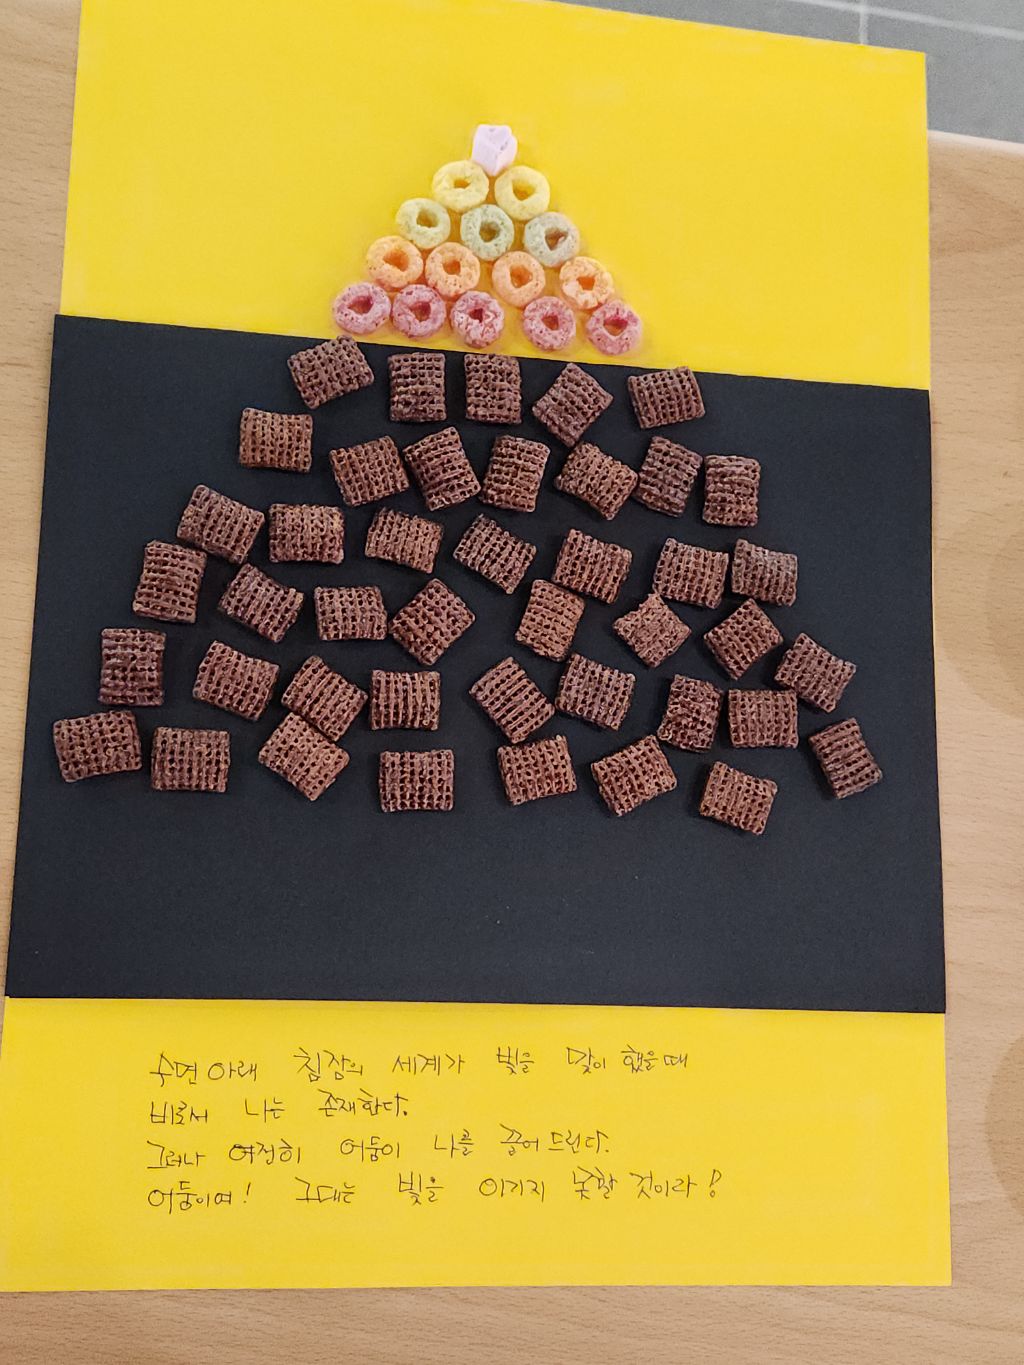 수면 아래 침잠의 세계가 빛을 맞이 했을 때
비로서 나는 존재한다.
그러나 여전히 어둠이 나를 끌어 드린다.
어둠이여! 그대는 빛을 이기지 못할 것이라!